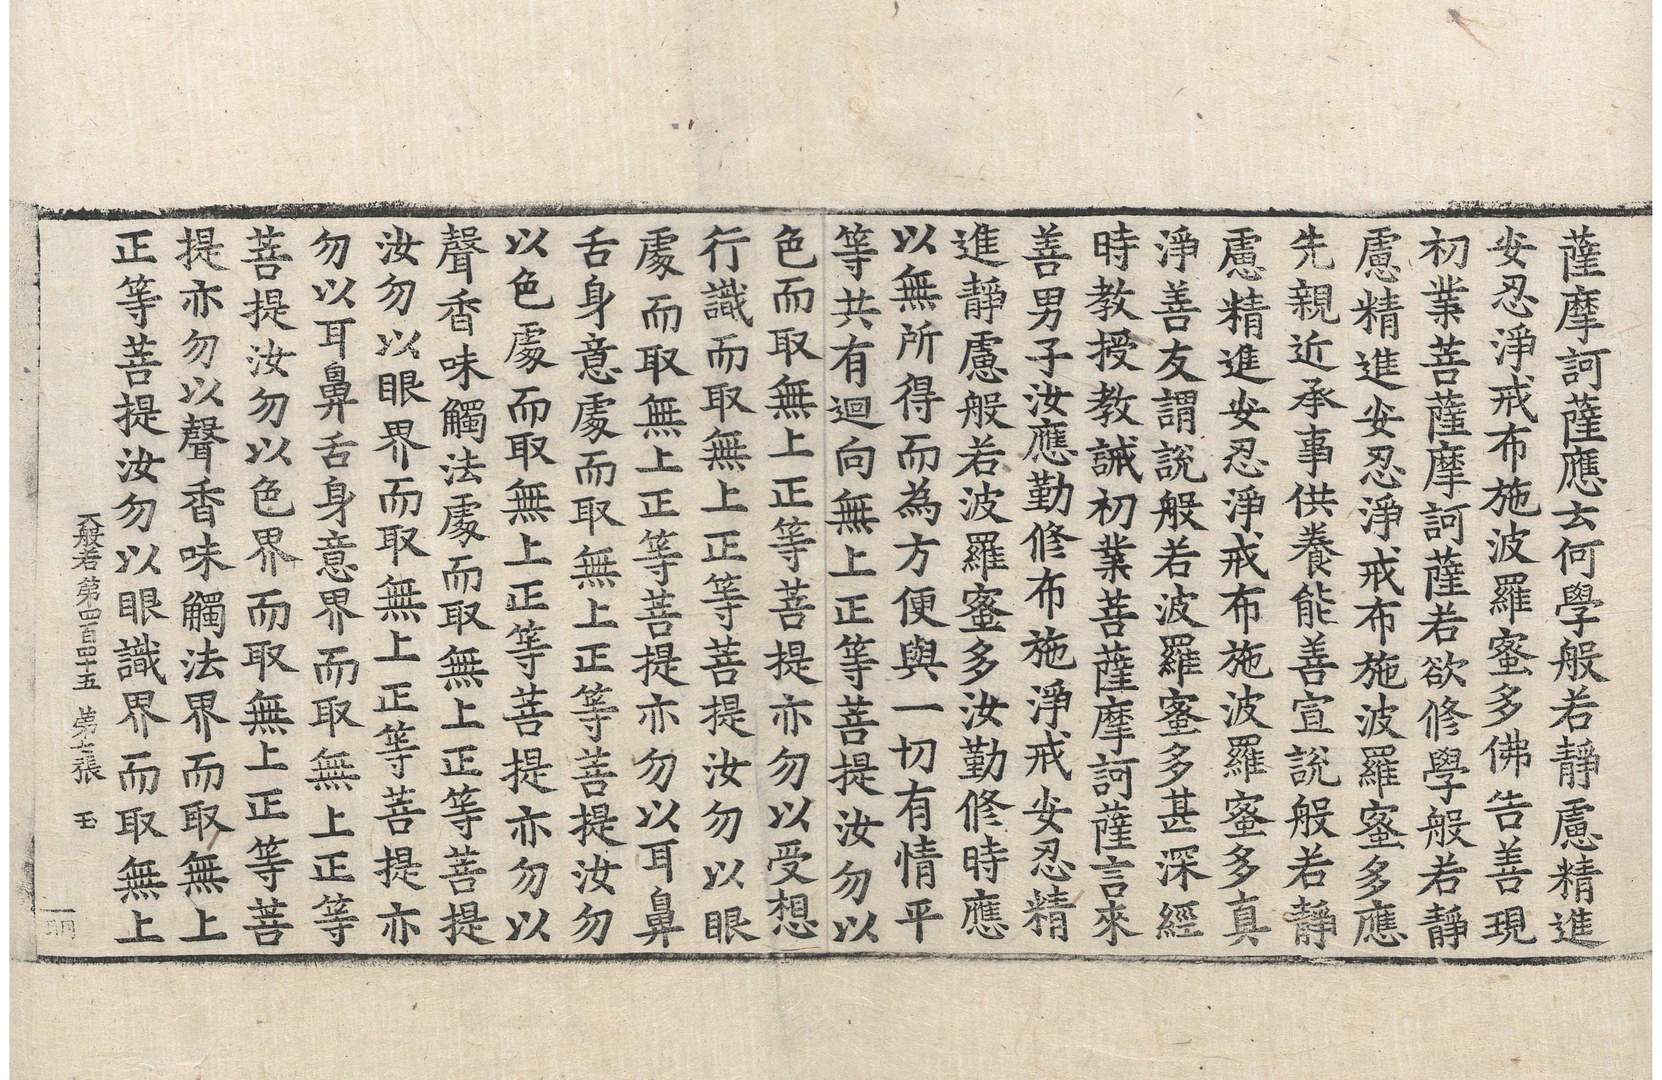 薩摩訶薩應云何學般若靜慮精進
安忍淨戒布施波羅蜜多佛告善現
初業菩薩摩訶薩若欲修學般若靜
慮精進安忍淨戒布施波羅蜜多應
先親近承事供養能善宣說般若靜
慮精進安忍淨戒布施波羅蜜多真
淨善友謂說般若波羅蜜多甚深經
時教授教誡初業菩薩摩訶薩言來
善男子汝應勤修布施淨戒安忍精
進靜慮般若波羅蜜多汝勤修時應
以無所得而為方便與一切有情平
等共有迴向無上正等菩提汝勿以
色而取無上正等菩提亦勿以受想
行識而取無上正等菩提汝勿以眼
處而取無上正等菩提亦勿以耳鼻
舌身意處而取無上正等菩提汝勿
以色處而取無上正等菩提亦勿以
聲香味觸法處而取無上正等菩提
汝勿以眼界而取無上正等菩提亦
勿以耳鼻舌身意界而取無上正等
菩提汝勿以色界而取無上正等菩
提亦勿以聲香味觸法界而取無上
正等菩提汝勿以眼識界而取無上
大般若第四百四十五 第七張 玉